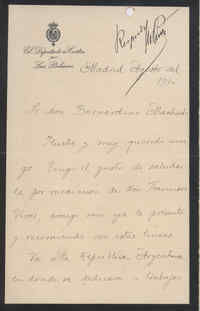 El Diputado a Cortes
por
Las Palmas
Madrid Agosto del
Sr don Bernardino Machado
Ilustre y muy querido ami
go: Tengo el gusto de saludar
le por mediacion de don Francisco
amigo mio que le presento
y recomiendo con estas lineas
Va a la Republica Argentina
en donde se dedicara a trabajos